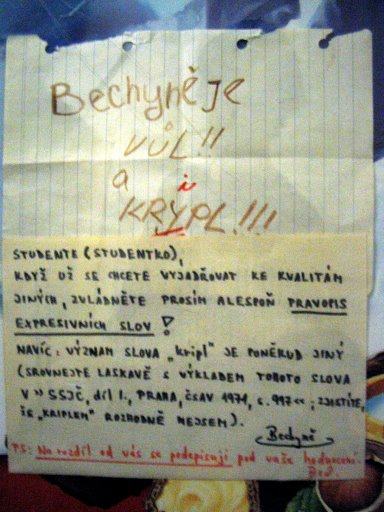 Bechyně je
VŮL!!
a i
KRYPL!!!
STUDENTE (STUDENTKO),
KDYŽ UŽ SE CHCETE VYJADŘOVAT KE KVALITÁM
JINÝCH, ZVLÁDNĚTE PROSÍM ALESPOŇ PRAVOPIS
EXPRESIVNÍCH SLOV!
NAVÍC: VÝZNAM SLOVA „kripl" JE PONĚKUD JINÝ
(SROVNEJTE LASKAVĚ S VÝKLADEM TOHOTO SLOVA
V >> SSJČ, díl I., PRAHA, ČSAV 1971, s. 997 <<; ZJISTÍTE,
ŽE „KRIPLEM" ROZHODNĚ NEJSEM).
Bechyně
PS: Na rozdíl od vás se podepisuji pod vaše hodnocení.
Bech.